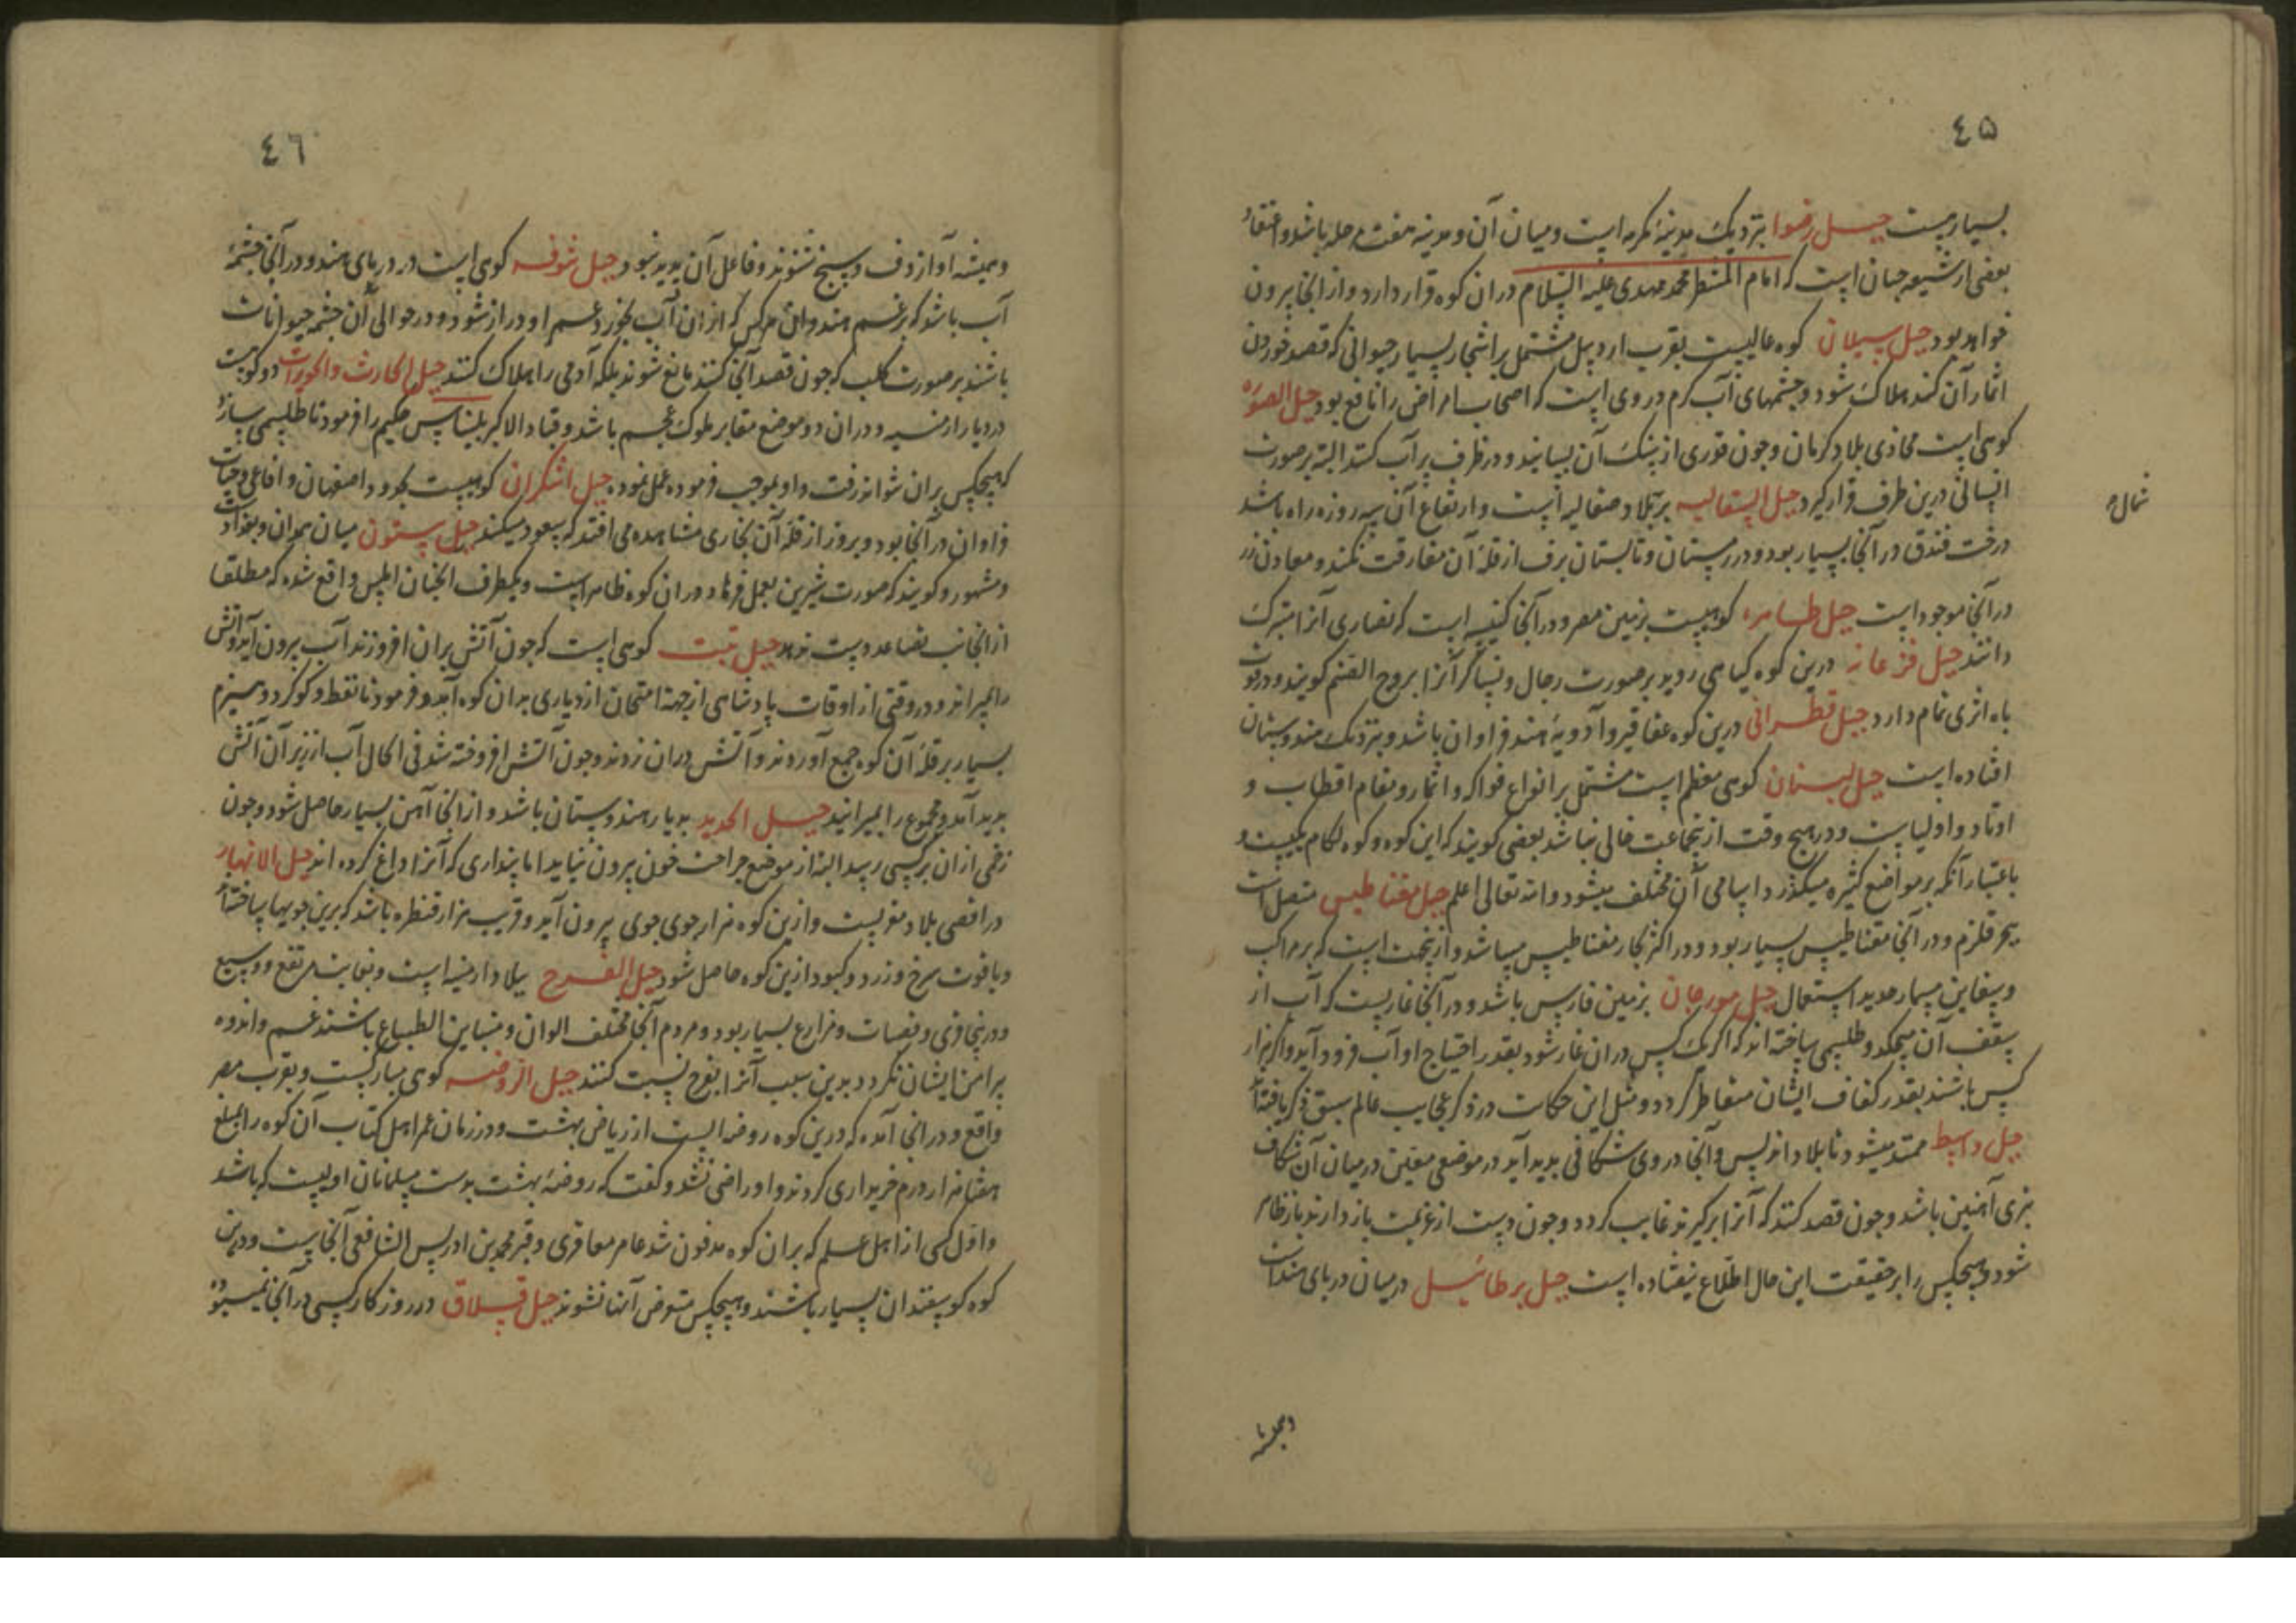 ٤٥
بسیاریست جبل رضوا بنزدیک مدینهٔ مکرمه است و میان آن و مدینه هفت مرحله باشد و اعتقاد
بعضی از شیعه چنان است که امام المنتظر محمد مهدی علیه السلام دران کوه قرار دارد و از انجا بیرون
خواهد بود جبل سبلان کوه عالیست بقرب اردبیل مشتمل بر اشجار بسیار و حیوانی که قصد خوردن
اثمار آن کند هلاک شود و چشمهای آب کرم در وی است که اصحاب امراض را نافع بود جبل الصوره
کوهی است محاذی بلاد کرمان و چون قدری از سنک آن بسایند و در ظرف پر آب کنند البته بر صورت
انسانی درین ظرف قرار کیرد جبل السقالیه بر بلاد صقالیه است و ارتفاع آن سه روزه راه باشد
شمال
درخت فندق در آنجا بسیار بود و در زمستان و تابستان برف از قلهٔ آن مفارقت نکند و معادن زر
در آنجا موجود است جبل طاهره کوهیست بزمین مصر و در آنجا کنیسه است که نصاری آنرا متبرک
دانند جبل فرغانه درین کوه کیاهی روید بر صورت رجال و نسا که آنرا یبروح الصنم کویند و در قوت
باه اثری تمام دارد جبل قطرانی درین کوه عقاقیر و آدویهٔ هند فراوان باشد و بنزدیک هندوستان
افتاده است جبل لبنان کوهی معظم است مشتمل بر انواع فواکه و اثمار و مقام اقطاب و
اوتاد و اولیاست و در هیچ وقت ازینجماعت خالی نباشد بعضی کویند که این کوه و کوه لکام یکیست و
باعتبار آنکه بر مواضع کثیره میکذرد اسامی آن مختلف میشود و الله تعالی اعلم جبل مغناطیس متصل است
ببحر قلزم و در آنجا مقناطیس بسیار بود و در اکثر بحار مغناطیس میباشد و ازینجهت است که بر مراکب
و سفاین مسمار حدید استعمال جبل مورجان بزمین فارس باشد و در آنجا غاریست که آب از
سقف آن میچکد و طلسمی ساخته اند که اکر یک کس دران غار شود بقدر احتیاج او آب فرود آید و اکر هزار
کس باشند بقدر کفاف ایشان متقاطر کردد و مثل این حکات در ذکر عجایب عالم سبق ذکر یافته
جبل واسط ممتد میشود تا بلاد اندلس و آنجا در وی شکافی بدید آید در موضعی معین در میان آن شکاف
تبری آهنین باشد و چون قصد کنند که آنرا برکیرند غایب کردد و چون دست از غیبت باز دارند باز ظاهر
شود و هیچکس را بر حقیقت این حال اطلاع نیفتاده است جبل برطائیل در میان دریای هند است
٤٦
و همیشه آواز دف و سنج شنوند و فاعل آن بدید نبود جبل شوفه کوهی است در دریای هند و در آنجا چشمهٔ
آب باشد که بزعم هندوان هر کس که از ان آب بخورد عمر او دراز شود و در حوالی آن چشمه حیوانات
باشند بر صورت کلب که چون قصد آنجا کنند مانع شوند بلکه آدمی را هلاک کنند جبل الحارث و الحویرث دو کوهیست
در دیار ارمنیه و دران دو موضع مقابر ملوک عجم باشد و قباد الاکبر بلیناس حکیم را فرمود تا طلسمی سازد
که هیچکس بران نتواند رفت و او بموجب فرموده عمل نموده جبل اشکران کوهیست بحدود اصفهان و افاعی و حیات
فراوان در آنجا بود و بروز از قلهٔ آن بخاری مشاهده می افتد که صعود میکند جبل بیستون میان همدان و بغداد است
و مشهور و کویند که صورت شیرین بعمل فرهاد دران کوه ظاهر است و یکطرف انجنان املس واقع شده که مطلقا
از انجانب تصاعد دست ندهد جبل تبت کوهی است که چون آتش بران افروزند آب بیرون آید و آتش
را بمیراند و در وقتی از اوقات پادشاهی از جهة امتحان از دیاری بدان کوه آمد و فرمود تا نفط و کوکرد و هیزم
بسیار بر قلهٔ آن کوه جمع آوردند و آتش دران زدند و چون آتش افروخته شد فی الحال آب از زیر آن آتش
بدید آمد و مجموع را بمیرانید جبل الحدید بدیار هندوستان باشد و از انجا آهن بسیار حاصل شود و چون
زخمی از ان بر کسی رسد البته از موضع جراحت خون بیرون نیاید اما پنداری که آنرا داغ کرده اند جبل الانهار
در اقصی بلاد مغربست و ازین کوه هزار جوی جوی بیرون آید و قریب هزار قنطره باشد که برین جویها ساخته
و یاقوت سرخ و زرد و کبود ازین کوه حاصل شود جبل الفرح ببلاد ارمنیه است و بغایت مرتفع و وسیع
و درینجا قری و قصبات و مزارع بسیار بود و مردم آنجا مختلف الوان و متباین الطباع باشند غم و اندوه
پرامن ایشان نکردد بدین سبب آنرا بفرح نسبت کنند جبل الروضه کوهی مبارکست و بقرب مصر
واقع و در انجا آمده که درین کوه روضه ایست از ریاض بهشت و در زمان عمر اهل کتاب آن کوه را بمبلغ
هفتاد هزار درم خریداری کردند و او راضی نشد و کفت که روضهٔ بهشت بدست مسلمانان اولیست که باشد
و اول کسی از اهل علم که بران کوه مدفون شد عامر معافری و قبر محمد بن ادریس الشافعی آنجاست و درین
کوه کوسفندان بسیار باشند و هیچکس متعرض آنها نشوند جبل قسلاق در روز کار کسی در آنجا نمیبود